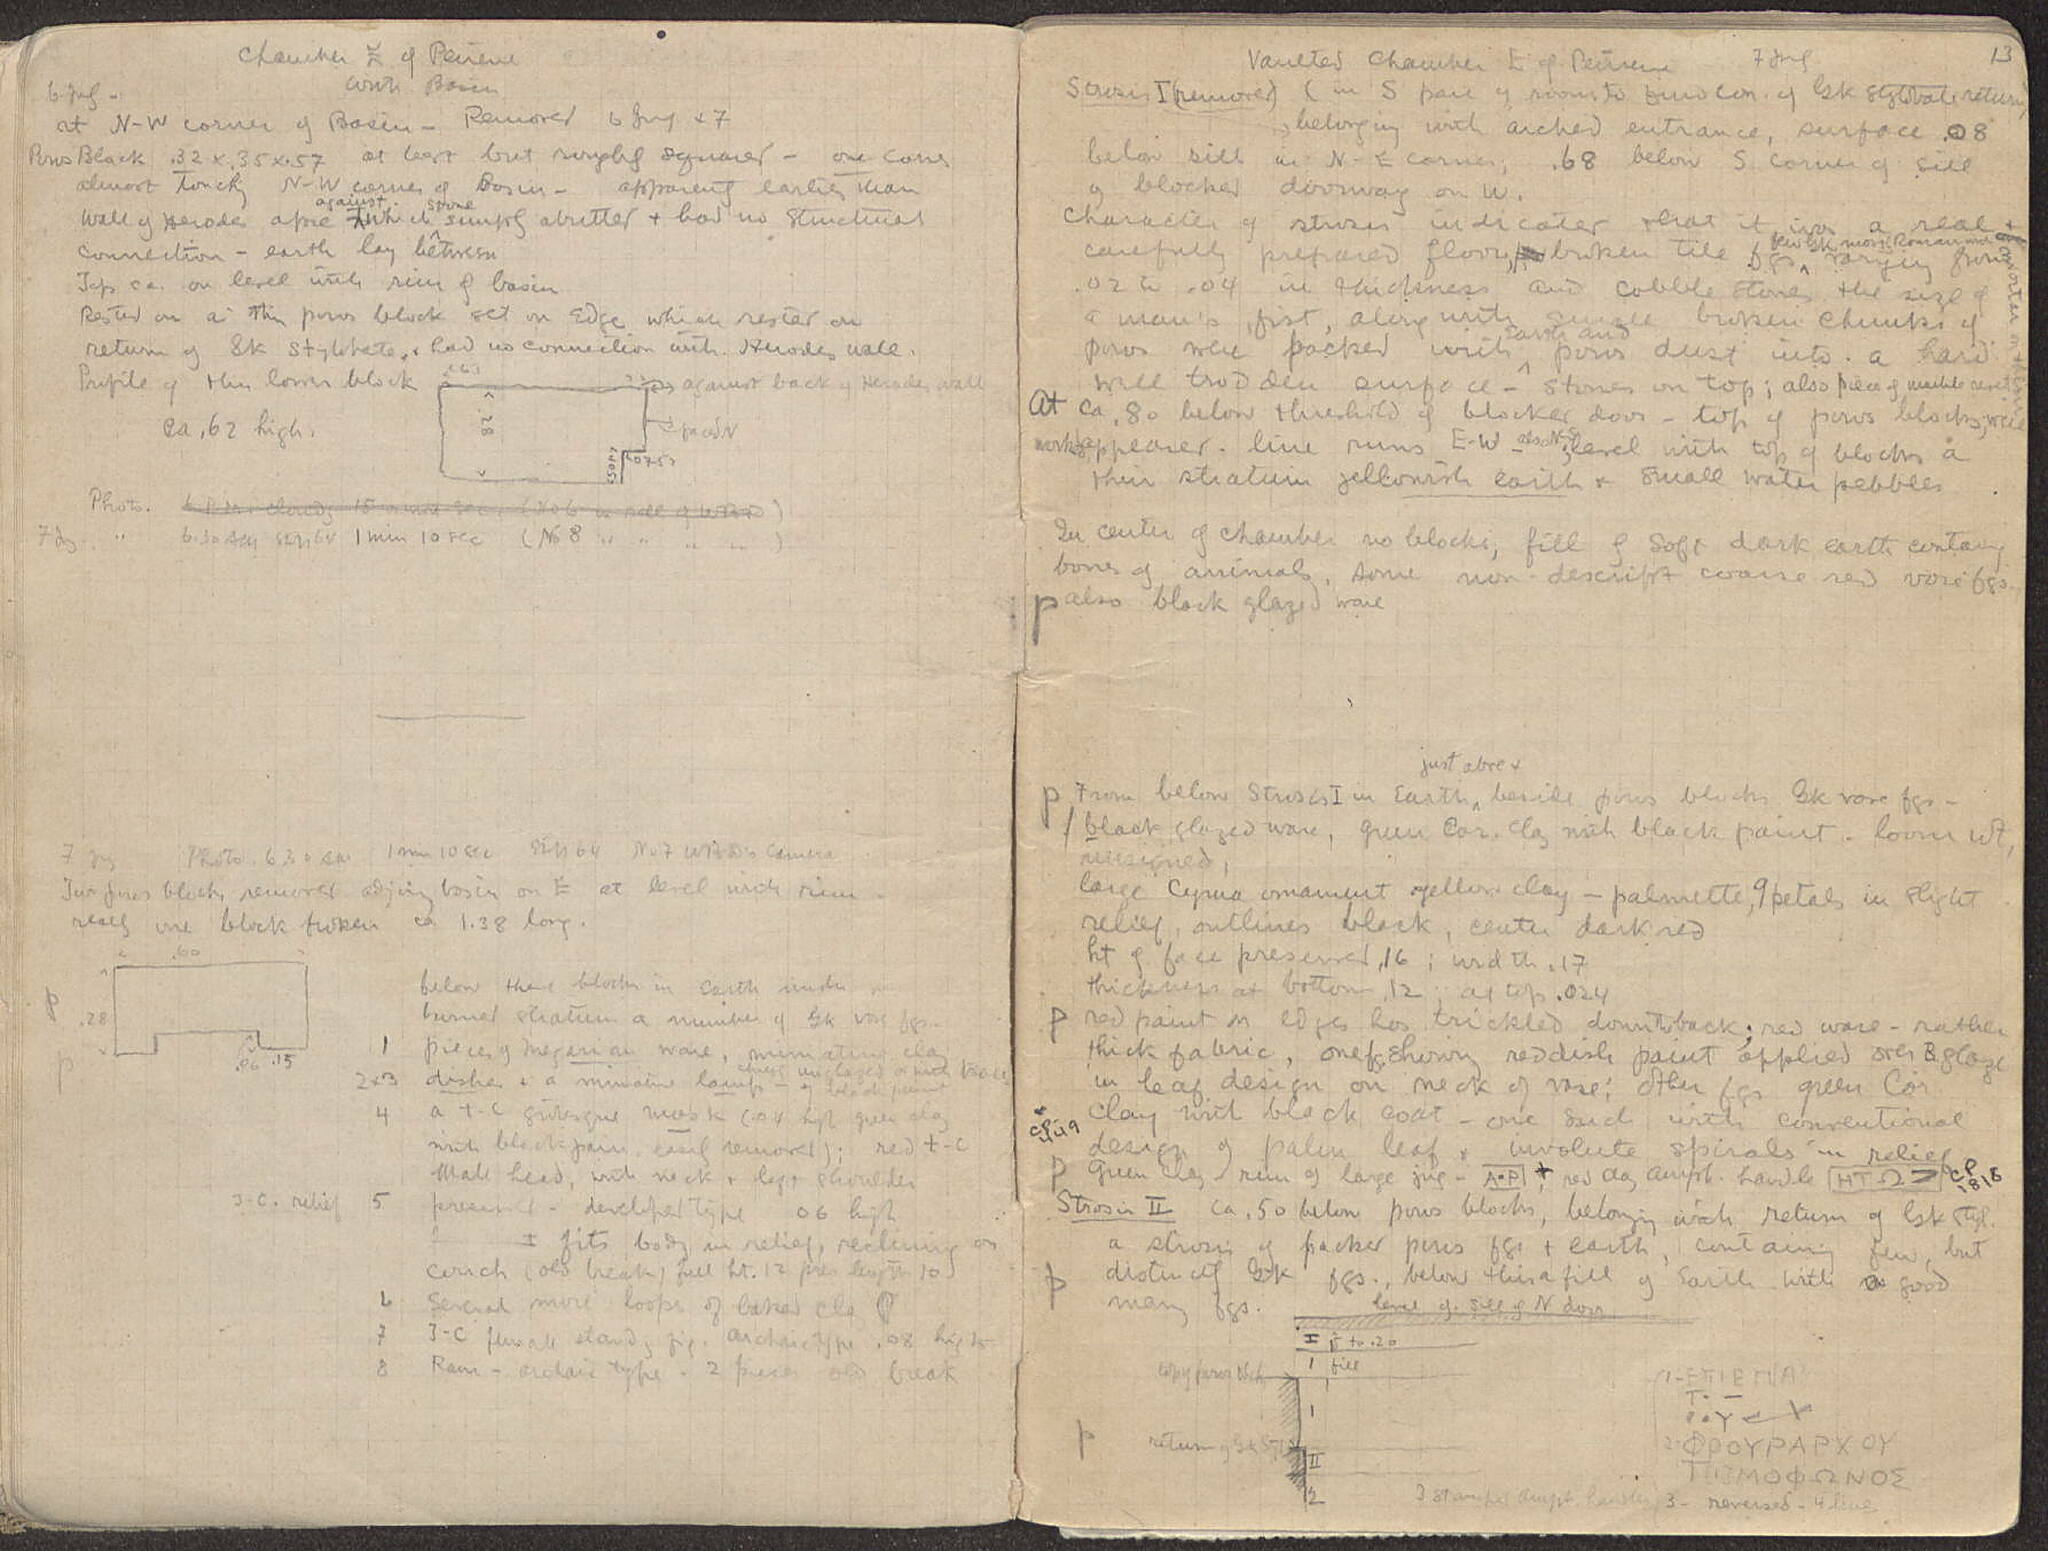 Chamber E of Peirene
with Basin
6 July -
at N-W corner of Basin - Removed 6 July + 7
Poros Block .32 x .35 x .57 at least but roughly squared - one corner
almost touching N-W corner of Basin - apparently earlier than
wall of Herodes apse against which stone simply abutted + had no structural
connection - earth lay between
Top ca. on level with rim of basin
Rested on a thin poros block set on edge which rested on
return of Gk stylobate, + had no connection with Herodes wall.
Profile of this lower block .63 against back of Herodes wall
ca .62 high. .78 faced N
.075
Photo. 6 P.M. cloudy 15 sec (No 6 in roll of )
7 July " 6:30 1 min 10 sec (No 8 " " " " )
7 July Photo. 6.30 1 min 10 sec stop 64 No 7 camera
Two poros blocks removed adjoining basin on E at level with rim -
really one block broken ca 1.38 long.
.60
p .28
.06 .15
p
below these blocks in earth under
burned stratum a number of Gk vase fgs -
1 pieces of Megarian ware, miniature clay
2+3 dishes + a miniature lamp - of black paint
4 a T-C grotesque mask (.04 high green clay
with black paint easily removed); red T-C
Male head, with neck + left shoulder
T-C. relief 5 preserved - developed type .06 high
fits body in relief, reclining on
couch (old break) full ht. .12 pres length .10
6 Several more loops of baked clay
7 T-C female standing fig. archaic type .08 high
8 Ram - archaic type - 2 pieces old break
Vaulted Chamber E of Peirene 7 July 13
Strosis I (removed) (in S part of room to find con. of Gk stylobate return)
belonging with arched entrance, surface .08
below sill in N-E corner, .68 below S corner of sill
of blocked doorway on W.
Character of strosis indicates that it was a real +
carefully prepared floor, broken tile fgs, few Gk, most Roman varying from
.02 to .04 in thickness and cobble stones the size of
a man's fist, along with small broken chunks of
poros were packed with earth and poros dust into a hard
well trodden surface - stones on top; also piece of marble
At ca .80 below threshold of blocked door - top of poros blocks, well
worked, appeared - line runs E-W also N-S; level with top of blocks a
thin stratum yellowish earth + small water pebbles
In center of chamber no blocks, fill of soft dark earth containing
bones of animals, some non-descript coarse red vase fgs.
p also black glazed ware
just above +
p From below Strosis I in Earth, beside poros blocks Gk vase fgs -
black glazed ware, green Cor. clay with black paint - loom wt,
unsigned;
large Cyma ornament yellow clay - palmette, 9 petals in slight
relief, outlines black, center dark red
ht of face preserved .16; width .17
thickness at bottom .12, at top .024
p red paint on edges has trickled down to back; red ware - rather
thick fabric, one fg. showing reddish paint applied over B. glaze
in leaf design on neck of vase; other fgs green Cor
clay with black coat - one such with conventional
design of palm leaf + involute spirals in relief
p Green clay - rim of large jug - A·P + red clay amph. handle HTΩ> CP 1818
Strosis II ca .50 below poros blocks, belonging with return of Gk Styl.
a strosis of packed poros fgs + earth, containing few, but
distinctly Gk fgs., below this a fill of Earth with a good
p many fgs.
level of sill of N door
I .15 to .20
1 fill
top of poros block
1
p return of Gk Styl
II
2
1 - ΕΠΙΕΠΙΑ
2 - ΦΡΟΥΡΑΡΧΟΥ
ΤΙΜΟΦΩΝΟΣ
3 stamped amph. handles 3 - reversed - 4 line